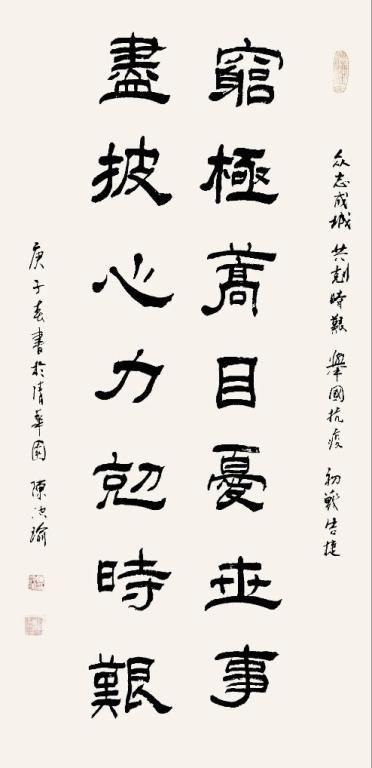 众志成城 共剋時艱 舉國抗疫 初戰告捷
窮極蒿目憂世事
盡披心力剋時艱
庚子春書於清華園 陳池瑜